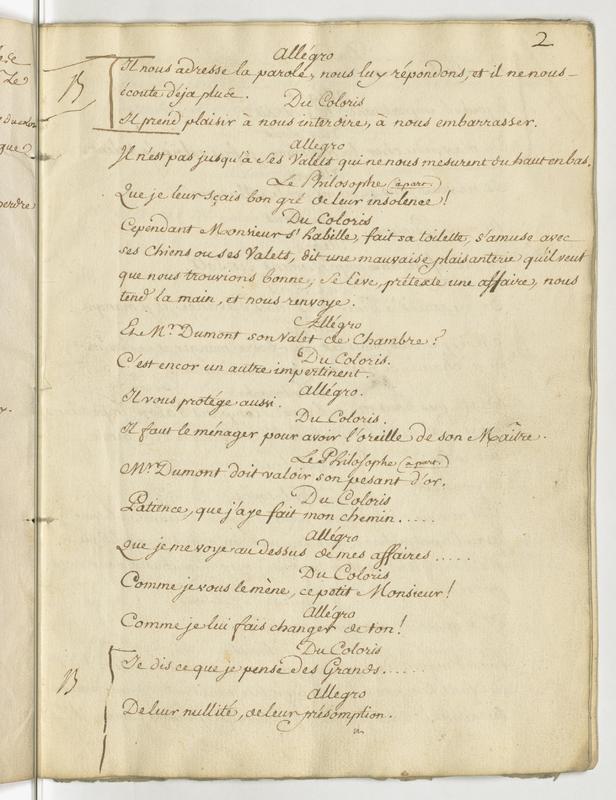 2
Allégro
B Il nous adresse la parole, nous luy répondons, et il ne nous
écoute déja plus.
Du Coloris
Il prend plaisir à nous interdire, à nous embarrasser.
Allegro
Il n'est pas jusqu'à ses Valets qui ne nous mesurent du haut en bas.
Le Philosophe (à part.)
Que je leur sçais bon gré de leur insolence!
Du Coloris
Cependant Monsieur s'habille, fait sa toilette, s'amuse avec
ses Chiens ou ses Valets, dit une mauvaise plaisanterie qu'il veut
que nous trouvions bonne, se lève, prétexte une affaire, nous
tend la main, et nous renvoye.
Allégro
Et Mr. Dumont son Valet de Chambre?
Du Coloris.
C'est encor un autre impertinent.
Allégro.
Il vous protége aussi.
Du Coloris.
Il faut le ménager pour avoir l'oreille de son Maître.
Le Philosophe (à part.)
Mr. Dumont doit valoir son pesant d'or.
Du Coloris
Patience, que j'aye fait mon chemin.....
Allégro
Que je me voye au dessus de mes affaires.....
Du Coloris
Comme je vous le mène, ce petit Monsieur!
Allégro
Comme je lui fais changer de ton!
Du Coloris
B Je dis ce que je pense des Grands.....
Allegro
De leur nullité, de leur présomption.